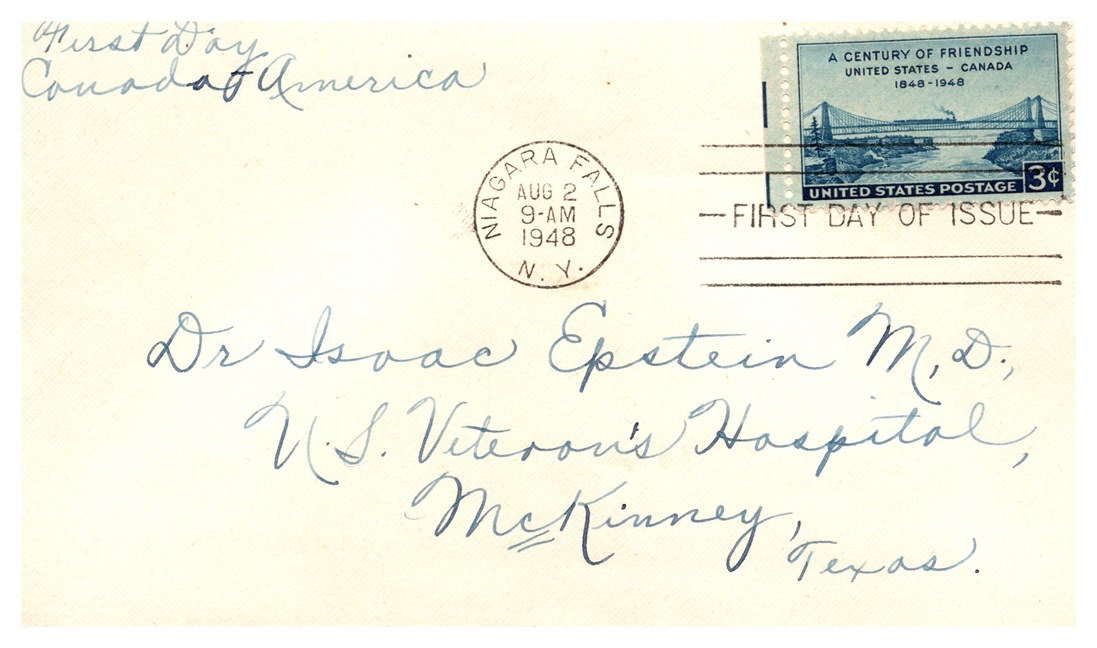 First Day
Canada & America
A CENTURY OF FRIENDSHIP
UNITED STATES - CANADA
1848-1948
3¢
UNITED STATES POSTAGE
NIAGARA FALLS
AUG 2
9-AM
1948
N. Y.
FIRST DAY OF ISSUE
Dr Isaac Epstein M.D.,
U.S. Veteran's Hospital,
McKinney,
Texas.